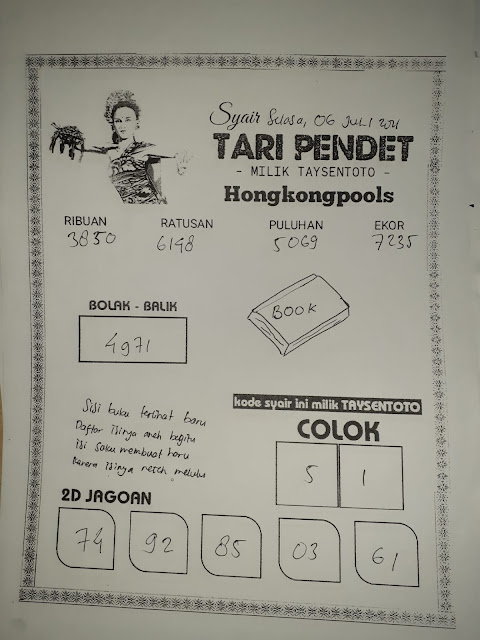 Syair Selasa, 06 JULI 2021
TARI PENDET
- MILIK TAYSENTOTO -
Hongkongpools
RIBUAN RATUSAN PULUHAN EKOR
3850 6148 5069 7235
BOLAK - BALIK
4971
BOOK
Sisi buku terlihat baru
Daftar isinya aneh begitu
isi saku membuat haru
karena isinya receh melulu
kode syair ini milik TAYSENTOTO
COLOK
5 1
2D JAGOAN
74 92 85 03 61